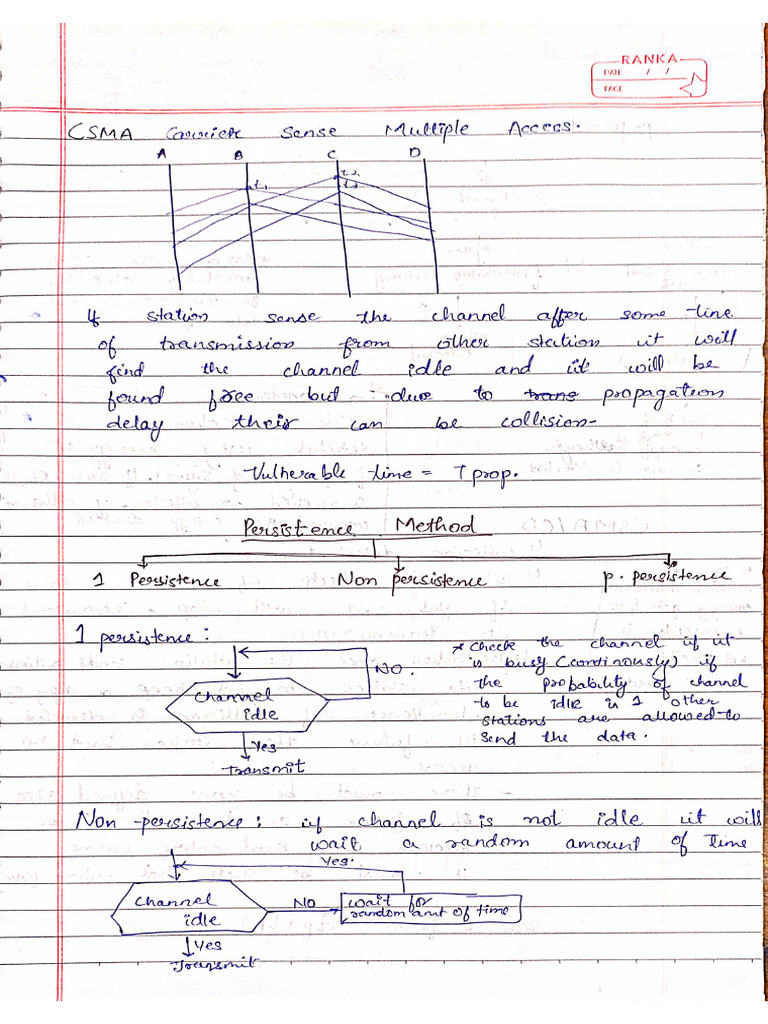 RANKA
DATE / /
PAGE
CSMA Carrier Sense Multiple Access.
A B C D
t1 t2
t3
If station sense the channel after some time
of transmission from other station it will
find the channel idle and it will be
found free but due to trans propagation
delay their can be collision-
Vulnerable time = Tprop.
Persistence Method
1 Persistence Non persistence p. persistence
1 persistence:
* Check the channel if it
is busy (continously) if
the probability of channel
to be idle is 1 other
stations are allowed to
send the data.
NO.
Channel
idle
Yes
Transmit
Non-persistence: if channel is not idle it will
wait a random amount of Time
Yes.
Channel
idle
NO
wait for
random amt of time
Yes
Transmit